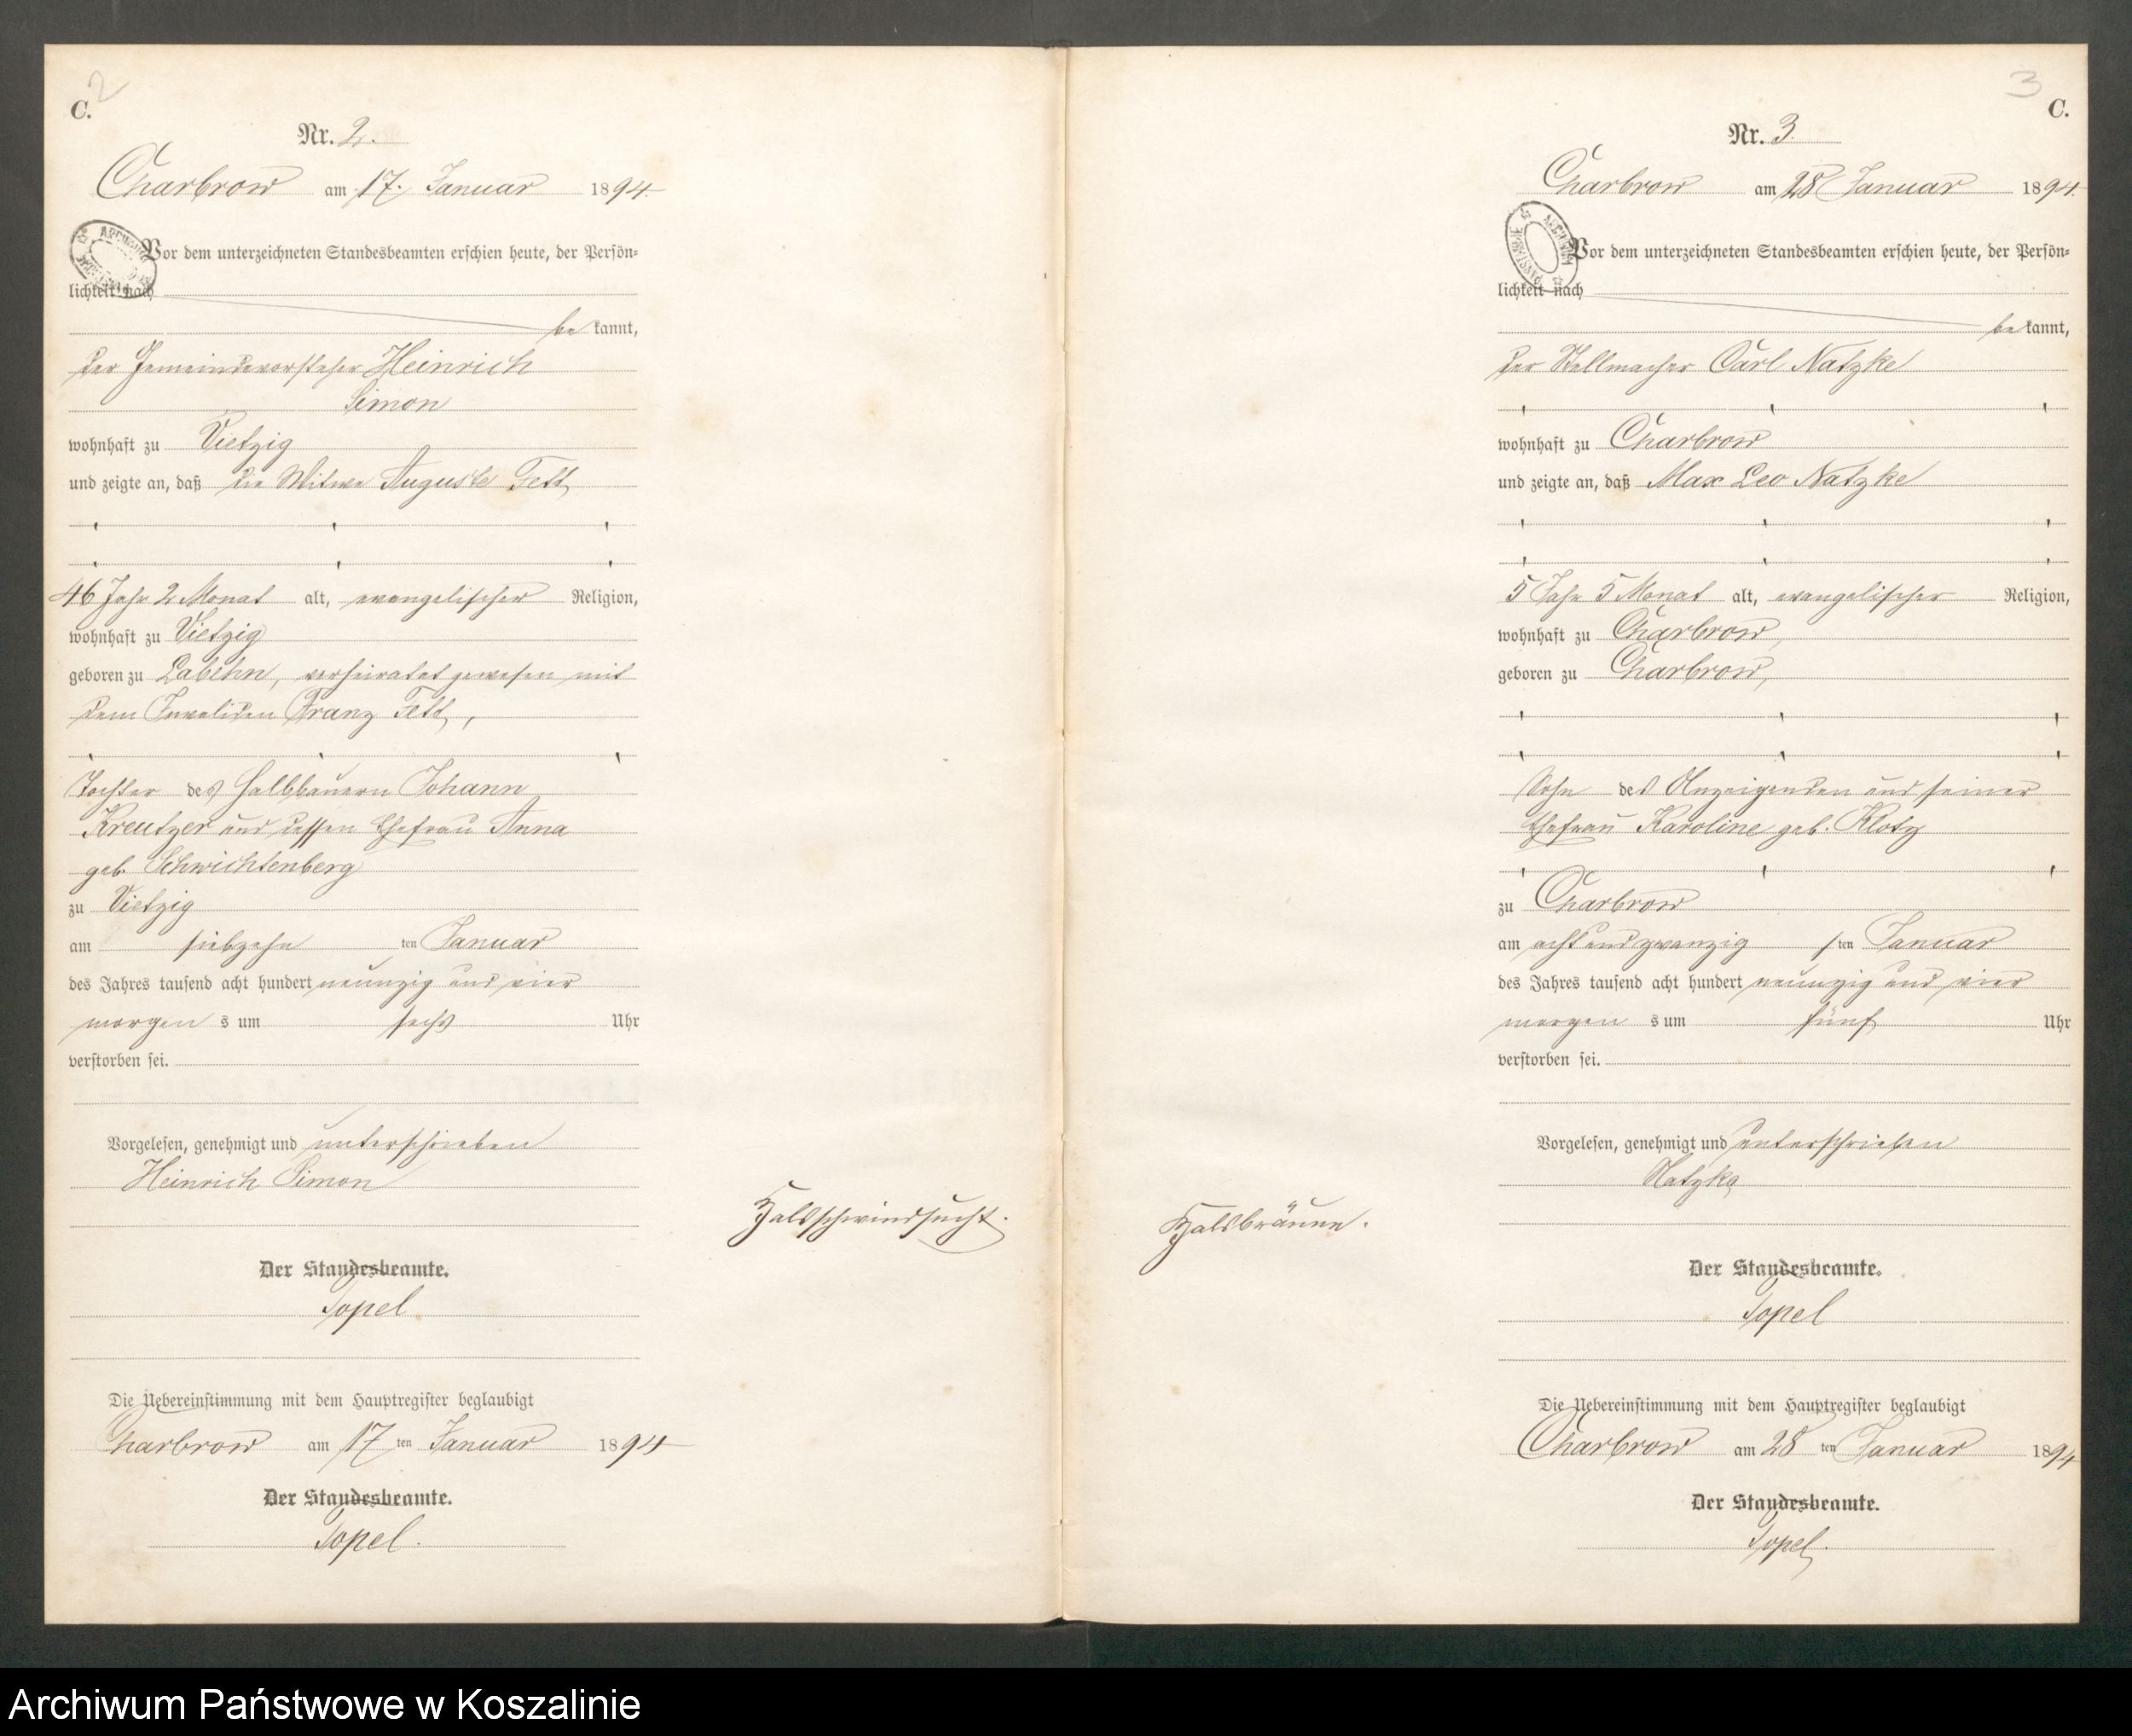 2
C.
Nr. 2.
Charbrow am 17. Januar 1894.
Vor dem unterzeichneten Standesbeamten erschien heute, der Persön-
lichkeit nach
be kannt,
der Gemeindevorsteher Heinrich
Simon
wohnhaft zu Vietzig
und zeigte an, daß die Witwe Auguste Fett,
46 Jahr 2 Monat alt, evangelischer Religion,
wohnhaft zu Vietzig
geboren zu Labehn, verheiratet gewesen mit
dem Invaliden Franz Fett,
Tochter des Halbbauern Johann
Kreutzer und dessen Ehefrau Anna
geb. Schwichtenberg
zu Vietzig
am siebzehn ten Januar
des Jahres tausend acht hundert neunzig und vier
morgen s um sechs Uhr
verstorben sei.
Vorgelesen, genehmigt und unterschrieben
Heinrich Simon
Halsschwindsucht.
Der Standesbeamte.
Topel
Die Uebereinstimmung mit dem Hauptregister beglaubigt
Charbrow am 17 ten Januar 1894
Der Standesbeamte.
Topel.
3
C.
Nr. 3
Charbrow am 28 Januar 1894.
Vor dem unterzeichneten Standesbeamten erschien heute, der Persön-
lichkeit nach
be kannt,
der Stellmacher Carl Natzke
wohnhaft zu Charbrow
und zeigte an, daß Max Leo Natzke
5 Jahr 5 Monat alt, evangelischer Religion,
wohnhaft zu Charbrow,
geboren zu Charbrow,
Sohn des Anzeigenden und seiner
Ehefrau Karoline geb. Klotz
zu Charbrow
am acht und zwanzig sten Januar
des Jahres tausend acht hundert neunzig und vier
morgen s um fünf Uhr
verstorben sei.
Vorgelesen, genehmigt und unterschrieben
Natzke
Halsbräune.
Der Standesbeamte.
Topel
Die Uebereinstimmung mit dem Hauptregister beglaubigt
Charbrow am 28 ten Januar 1894
Der Standesbeamte.
Topel.
Archiwum Państwowe w Koszalinie